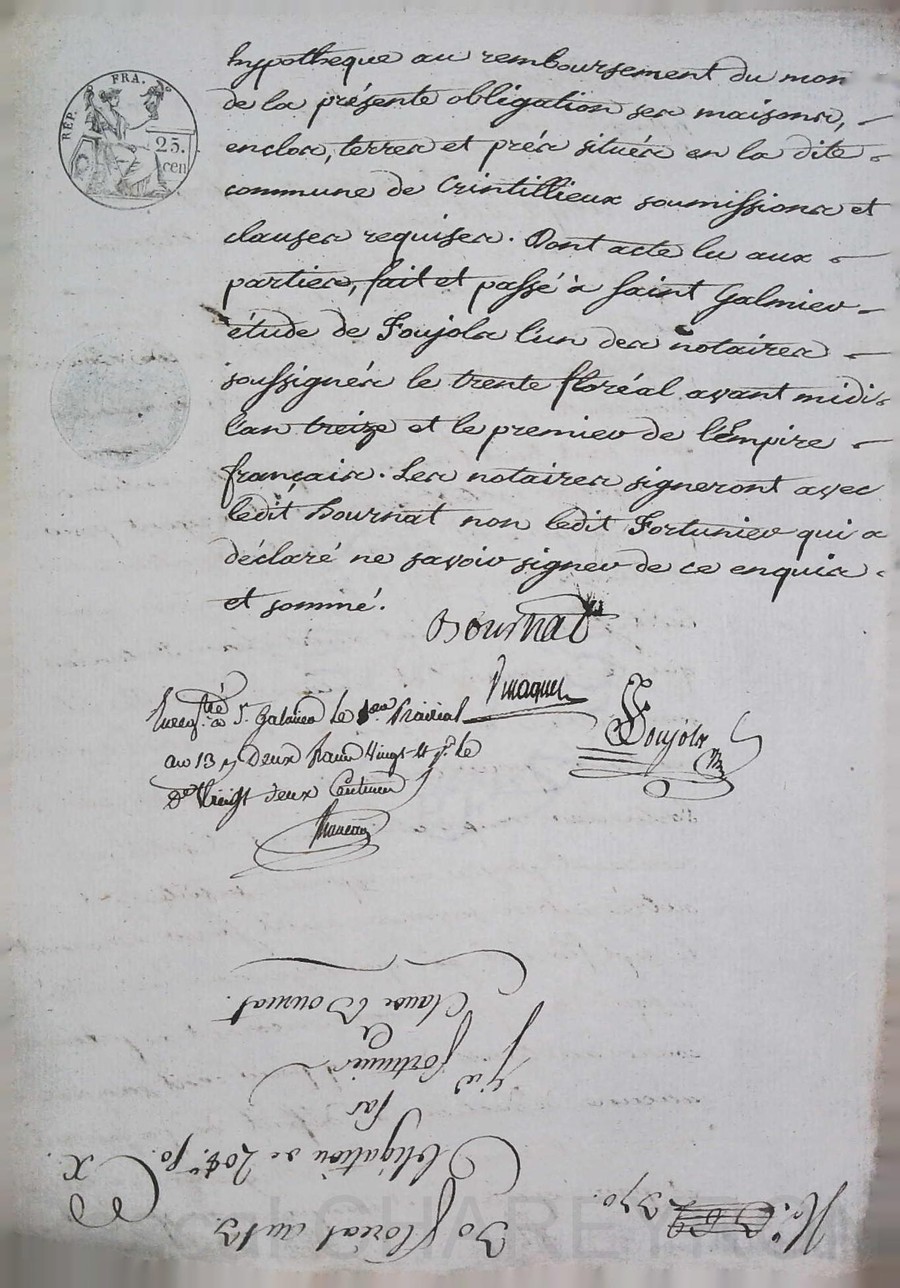 RÉP. FRA.
25.
cen
hypothèque au remboursement du mon
de la présente obligation ses maisons,
enclos, terres et prés situés en la dite
commune de Crintillieux soumissions et
clauses requises. Dont acte lu aux
parties, fait et passé à Saint Galmier
étude de Foujols l'un des notaires
soussignés le trente floréal avant midi
l'an treize et le premier de l'Empire
français. Les notaires signeront avec
ledit Bournat non ledit Fortunier qui a
déclaré ne savoir signer de ce enquis
et sommé.
Bournat
Foujols
à St. Galmier le 1er Prairial
an 13 Deux francs Vingt
Vingt deux Centimes
No. 369 2390.
30 floréal an 13
Obligation de 204. 90.
par
fortunier
à
Claude Bournat.